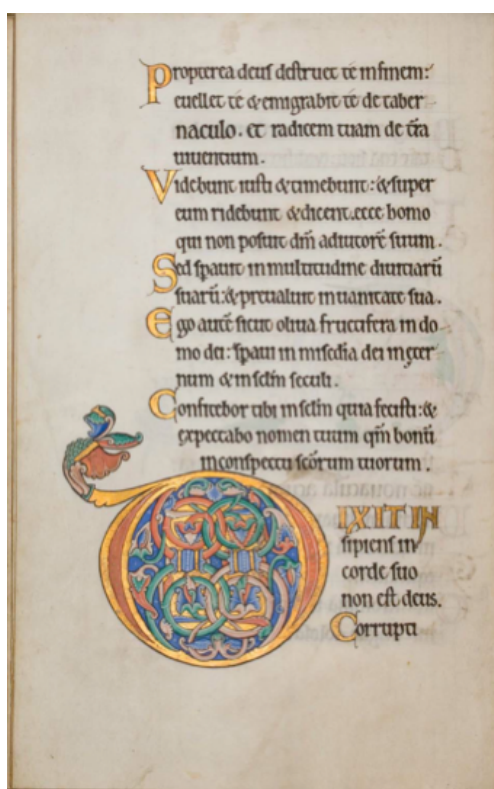 Propterea deus destruet te in finem:
euellet te & emigrabit te de taber
naculo. et radicem tuam de tr̄a
uiuentium.
Videbunt iusti & timebunt: & super
eum ridebunt & dicent. ecce homo
qui non posuit dm̄ adiutorē suum.
Sed sperauit in multitudine diuitiarū
suarū: & preualuit in uanitate sua.
Ego autē sicut oliua fructifera in do
mo dei: speraui in mis̄c̄dia dei in ęter
num & in sc̄lm seculi.
Confitebor tibi in sc̄lm quia fecisti: &
ęxpectabo nomen tuum qm̄ bonū
in conspectu sc̄orum tuorum.
DIXIT IN
sipiens in
corde suo
non est deus.
Corrupti